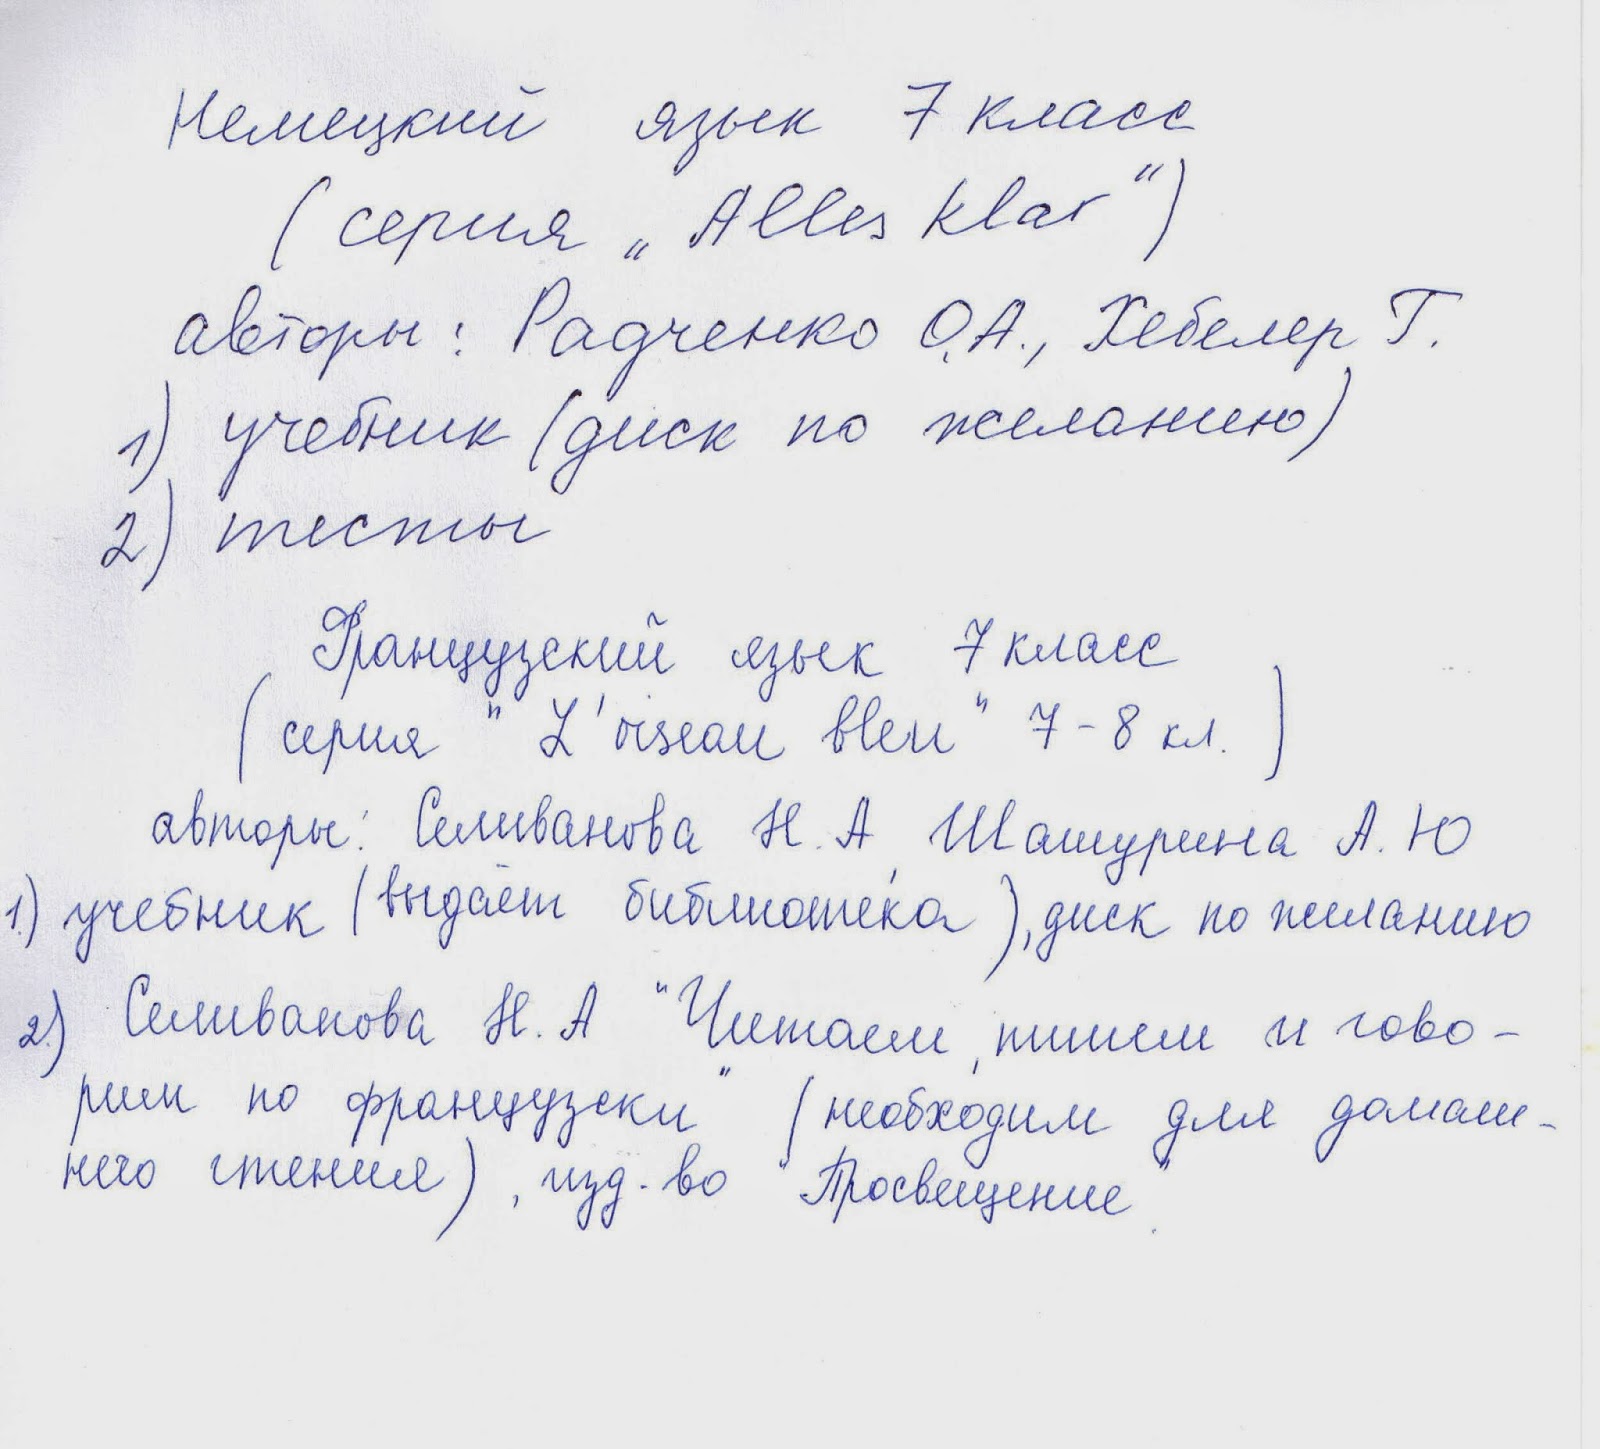 Немецкий язык 7 класс
(серия „Alles klar“)
авторы: Радченко О.А., Хебелер Г.
1) учебник (диск по желанию)
2) тесты
Французский язык 7 класс
(серия "L'oiseau bleu" 7-8 кл.)
авторы: Селиванова Н.А, Шашурина А.Ю
1.) учебник (выдаёт библиотека), диск по желанию
2.) Селиванова Н.А "Читаем, пишем и гово-
рим по французски" (необходим для домаш-
него чтения), изд-во "Просвещение".